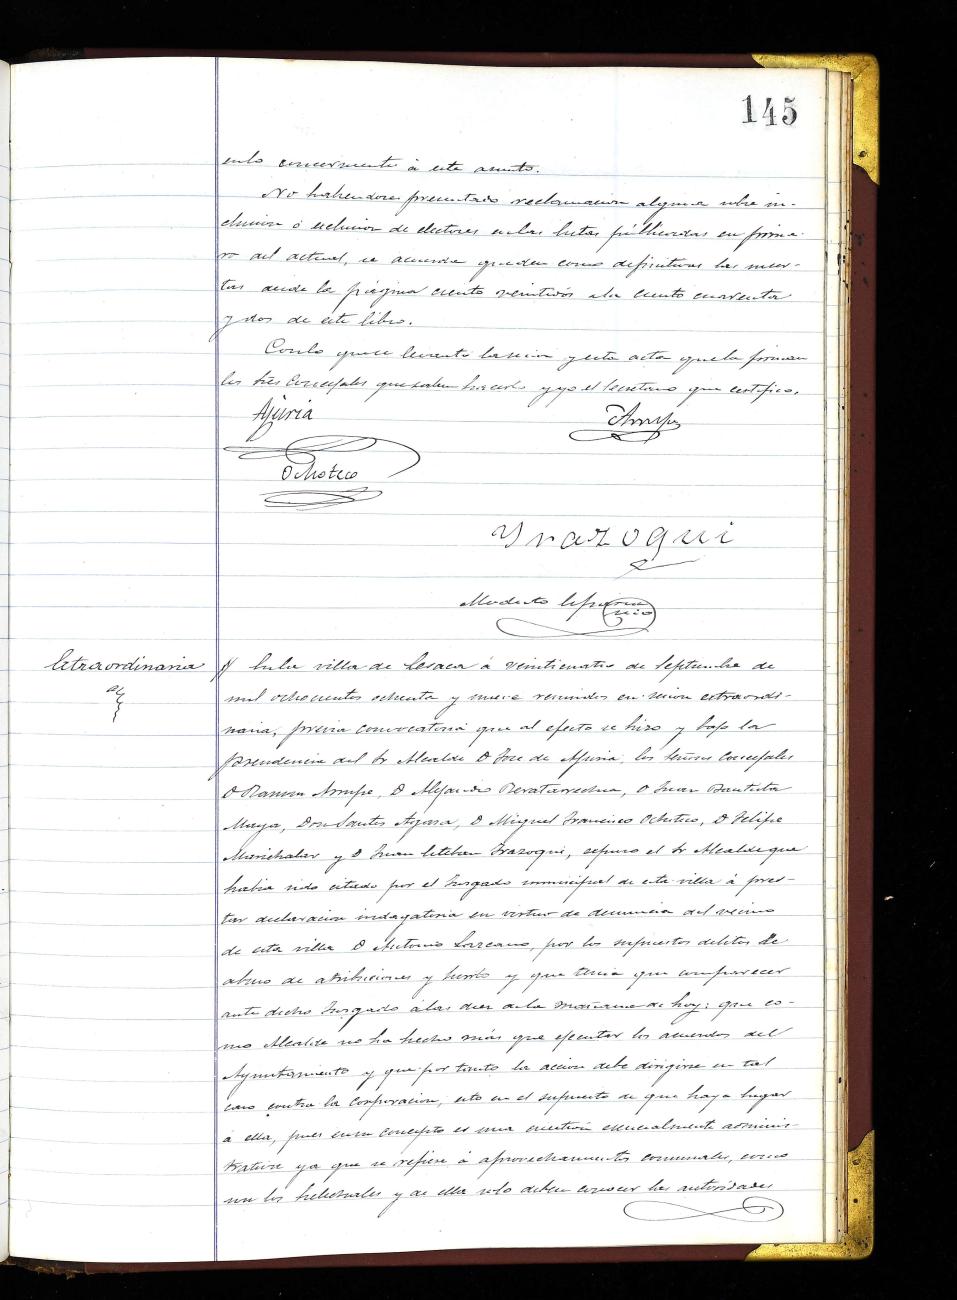 145
en lo concerniente á este asunto.
No habiendose presentado reclamacion alguna sobre in-
clusion ó esclusion de electores en las listas públicadas en prime-
ro del actual, se acuerda queden como difinitivas las inser-
tas desde la página ciento veintidos a la ciento cuarenta
y dos de este libro.
Con lo que se levantó la sesion y esta acta que la firman
los tres Concejales que saben hacerlo y yo el Secretario que certifico.
Ajuria
Arrupe
Ochoteco
Yrazoqui
Modesto
Extraordinaria
En la villa de Lesaca á veinticuatro de Septiembre de
mil ochocientos ochenta y nueve reunidos en sesion extraordi-
naria, previa convocatoria que al efecto se hizo y bajo la
presidencia del Sr Alcalde D Jose de Ajuria, los señores Concejales
D Ramon Arrupe, D Alejandro Peratarrechea, D Juan Bautista
Maya, Don Santos Agara, D Miguel Francisco Ochoteco, D Felipe
Marichalar y D Juan Esteban Yrazoqui, espuso el Sr Alcalde que
habia sido citado por el Juzgado municipal de esta villa á pres-
tar declaracion indagatoria en virtud de denuncia del vecino
de esta villa D Antonio Lazcano, por los supuestos delitos de
abuso de atribuciones y hurto y que tenia que comparecer
ante dicho Juzgado á las diez de la mañana de hoy: que co-
mo Alcalde no ha hecho más que ejecutar los acuerdos del
Ayuntamiento y que por tanto la accion debe dirigirse en tal
caso contra la Corporacion, esto en el supuesto de que haya lugar
á ella, pues en su concepto es una cuestion esencialmente adminis-
trativa ya que se refiere á aprovechamientos comunales, como
son los helechales y de ella solo deben conocer las autoridades